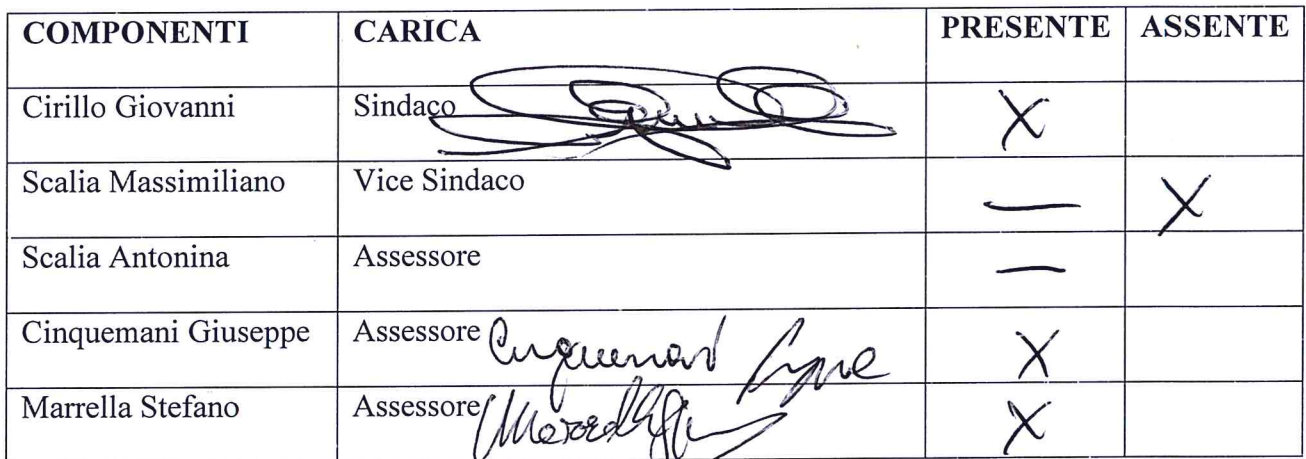 COMPONENTI CARICA PRESENTE ASSENTE
Cirillo Giovanni Sindaco X
Scalia Massimiliano Vice Sindaco — X
Scalia Antonina Assessore —
Cinquemani Giuseppe Assessore X
Marrella Stefano Assessore X